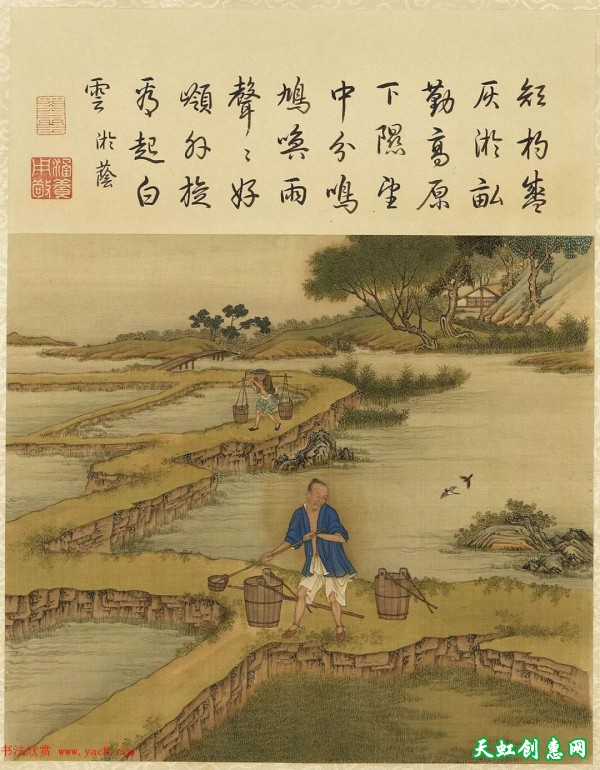 短杓盛
灰淤畝
勤高原
下隰望
中分鳴
鳩喚雨
聲々好
嶺外旋
看起白
雲 淤蔭
书法欣赏 www.yac8.com
天虹创惠网